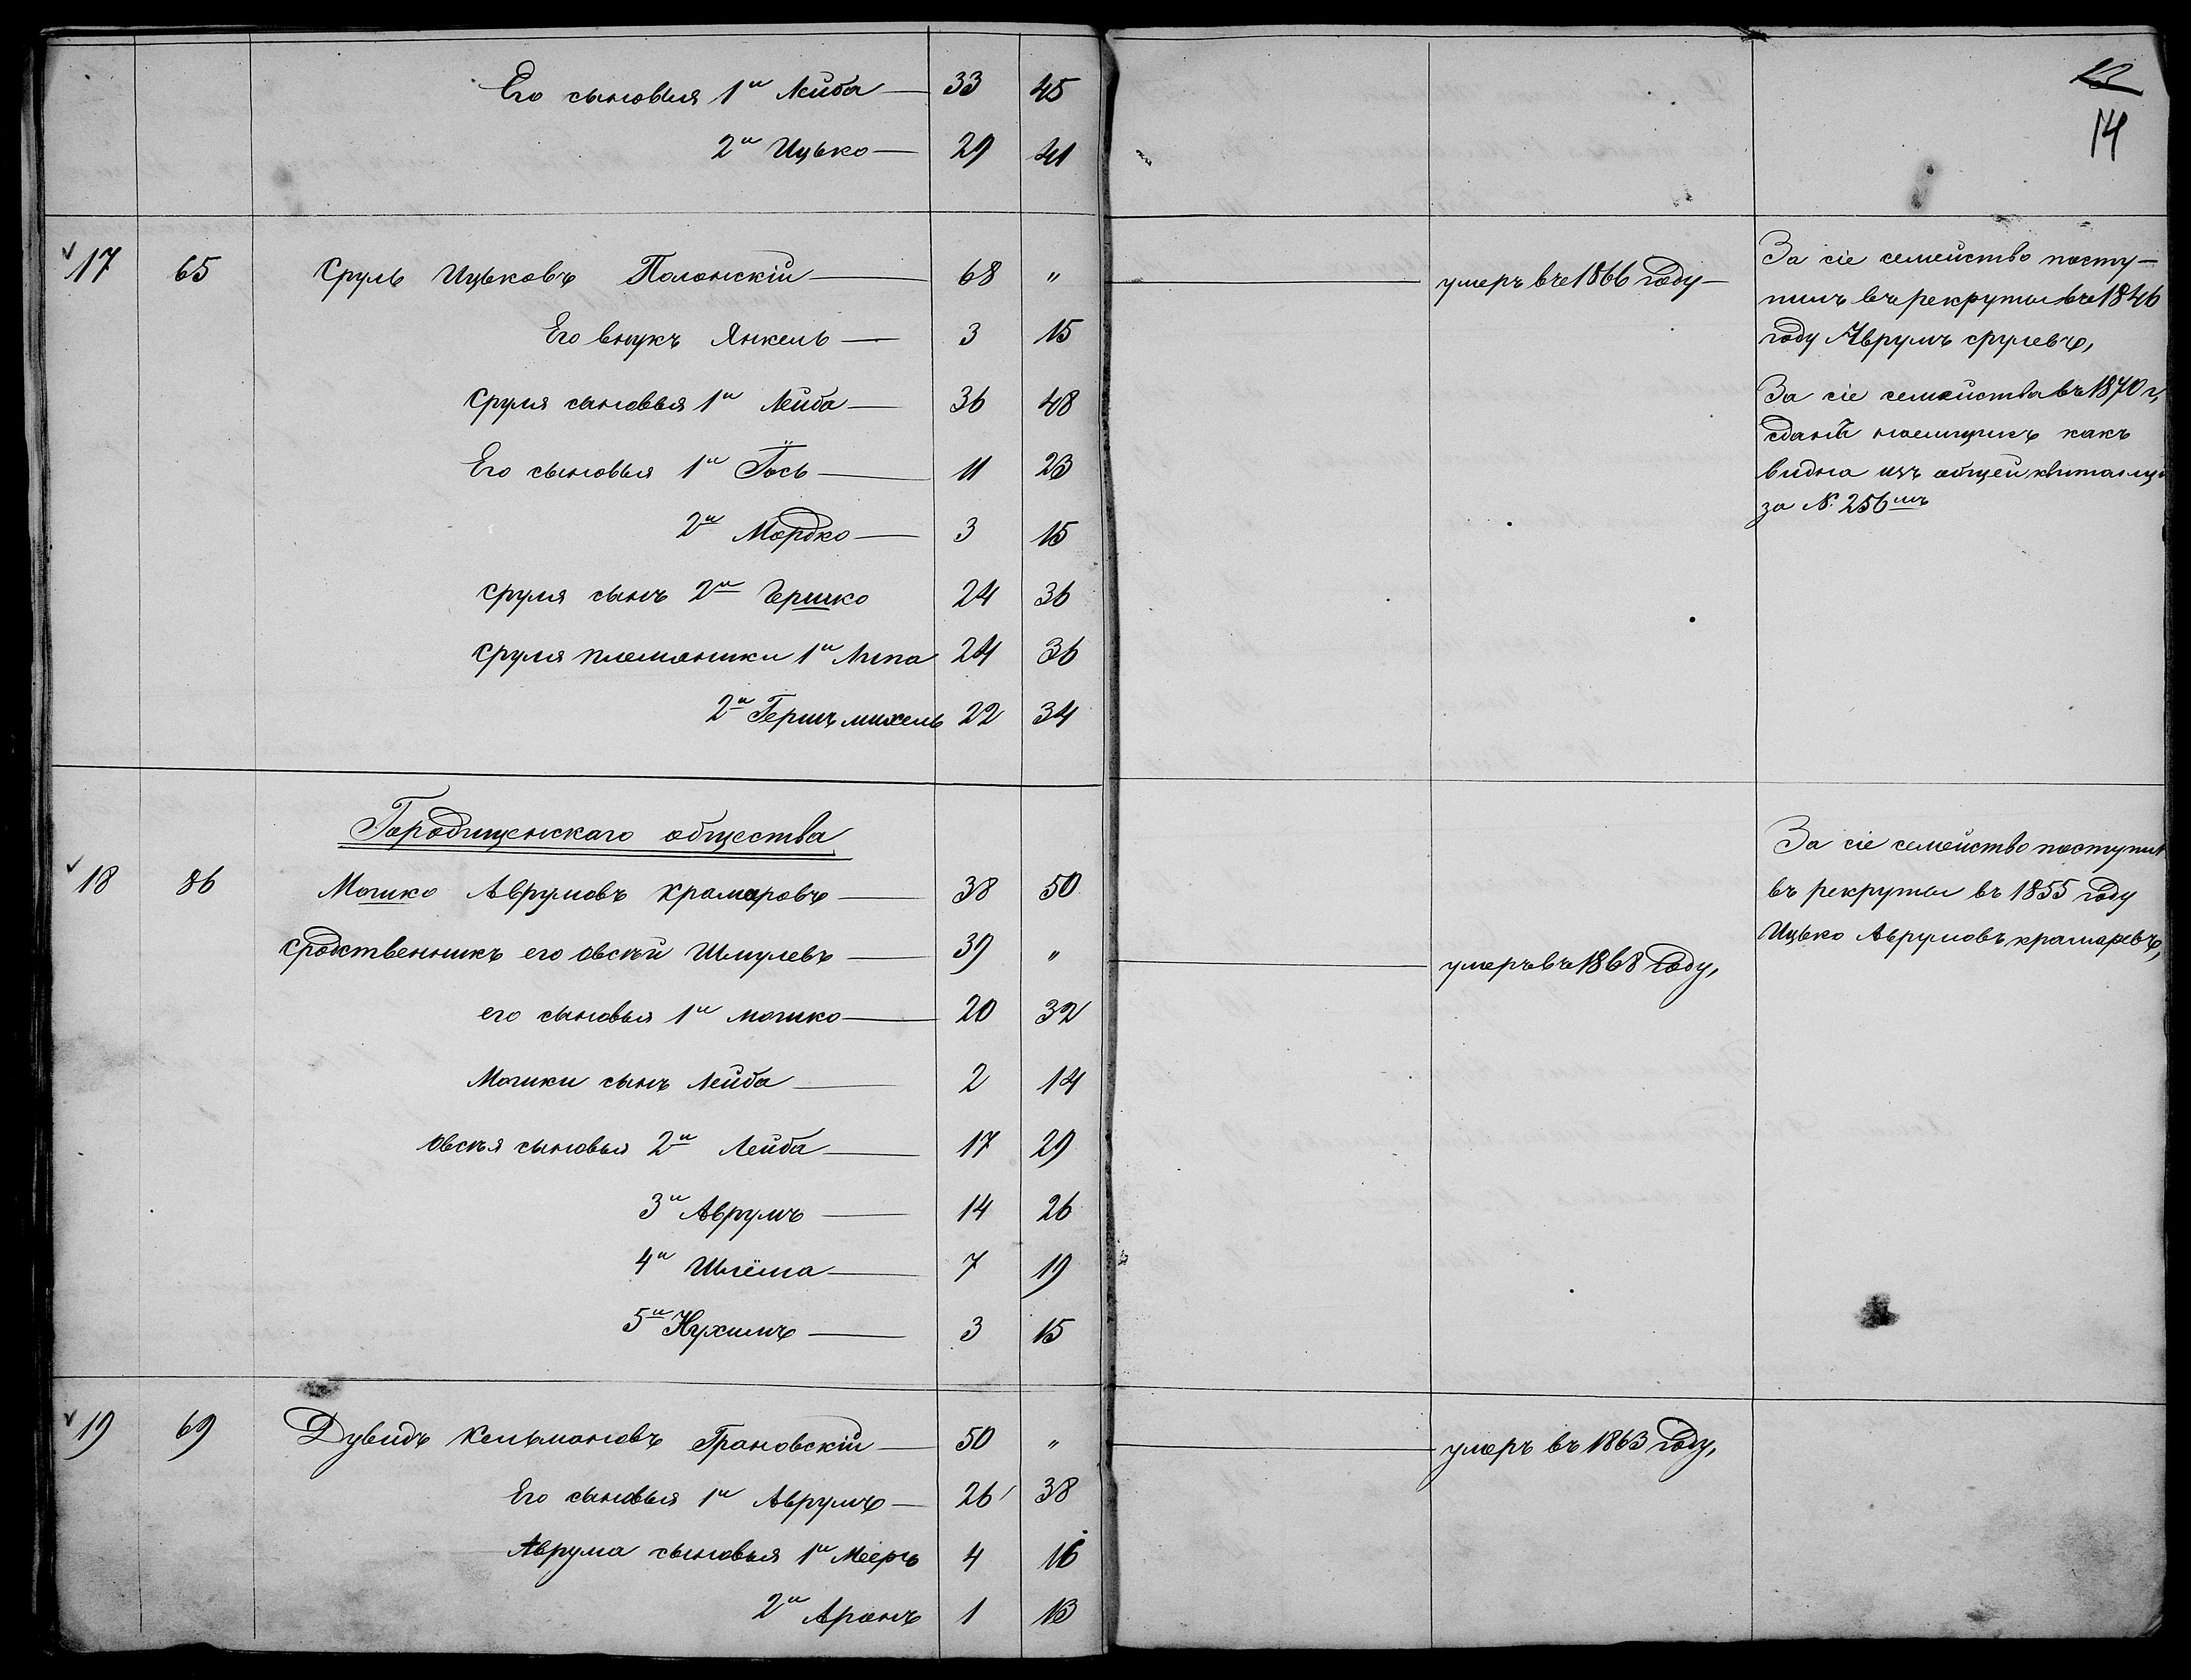 Его сыновья 1й Лейба — 33 45
2й Ицько — 29 41
14
17 65 Сруль Ицьковъ Полонскій — 68 " — умеръ въ 1866 году —
Его внукъ Янкель — 3 15
Сруля сыновья 1й Лейба — 36 48
Его сыновья 1й Іось — 11 23
2й Мордко — 3 15
Сруля сынъ 2й Гершко 24 36
Сруля племяники 1й Липа 24 36
2й Гершъ михель 22 34
За сіе семейство посту-
пилъ въ рекруты въ 1846
году Аврумъ срулевъ,
За сіе семейства въ 1870 г,
сданъ наемщикъ какъ
видна изъ общей квитанціи
за №. 256мъ
Городищенскаго общества
18 86 Мошко Аврумовъ Крамаровъ — 38 50
Сродственникъ его Овсѣй Шмулевъ — 39 " — умеръ въ 1868 году,
его сыновья 1й мошко — 20 32
Мошки сынъ Лейба — 2 14
Овсѣя сыновья 2й Лейба — 17 29
3й Аврумъ — 14 26
4й Шлёма — 7 19
5й Нухимъ — 3 15
За сіе семейство поступил
въ рекруты въ 1855 году
Ицько Аврумовъ крамаревъ,
19 69 Дувидъ Кельмановъ Грановскій — 50 " — умеръ въ 1863 году,
Его сыновья 1й Аврумъ — 26 38
Аврума сыновья 1й Мееръ 4 16
2й Аронъ 1 13